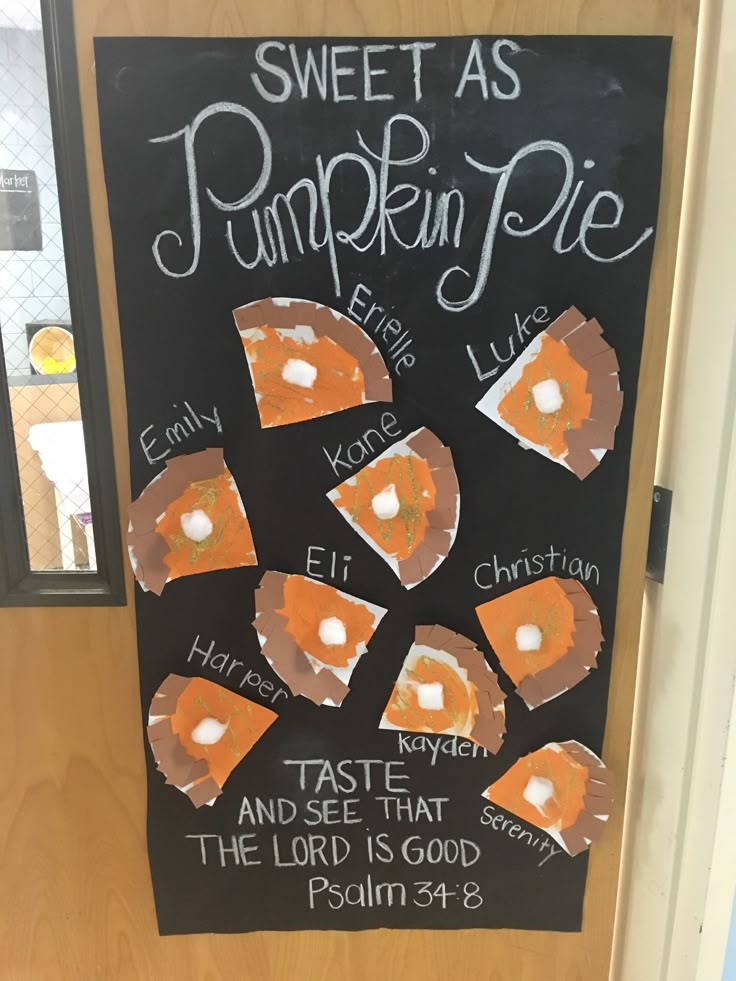 SWEET AS
Pumpkin Pie
Erielle
Luke
Emily
Kane
Eli
Christian
Harper
Kayden
Serenity
TASTE
AND SEE THAT
THE LORD IS GOOD
Psalm 34:8